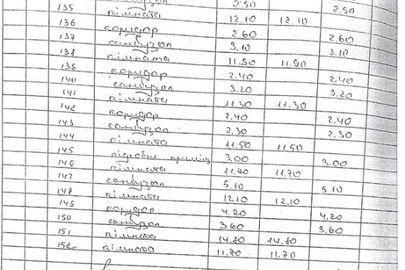 санвузол 2.50 2.50
135 кімната 12.10 12.10
136 коридор 2.60 2.60
137 санвузол 3.10 3.10
138 кімната 11.90 11.90
139 коридор 2.40 2.40
140 санвузол 3.20 3.20
141 кімната 11.30 11.30
142 коридор 2.40 2.40
143 санвузол 2.30 2.30
144 кімната 11.50 11.50
145 підсобне приміщ 3.00 3.00
146 кімната 11.70 11.70
147 санвузол 5.10 5.10
148 кімната 12.10 12.10
149 коридор 4.20 4.20
150 санвузол 3.60 3.60
151 кімната 14.80 14.80
152 кімната 11.70 11.70